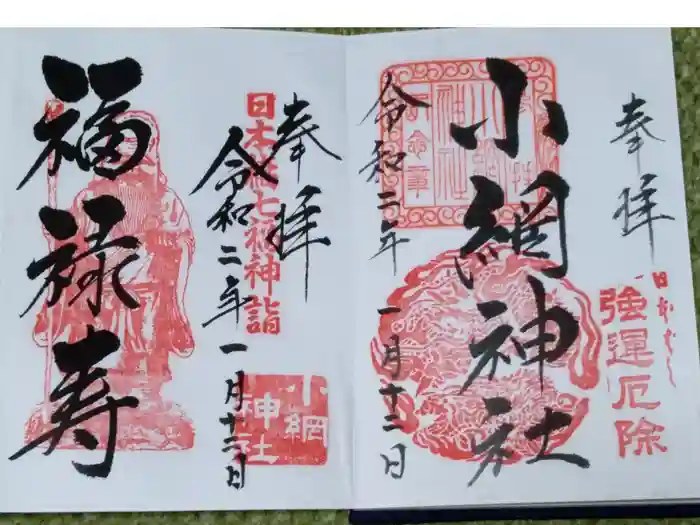 奉拝
日本ばし
強運厄除
小網神社
令和二年
一月十二日
奉拝
日本橋七福神詣
令和二年一月十二日
小網
神社
福禄寿